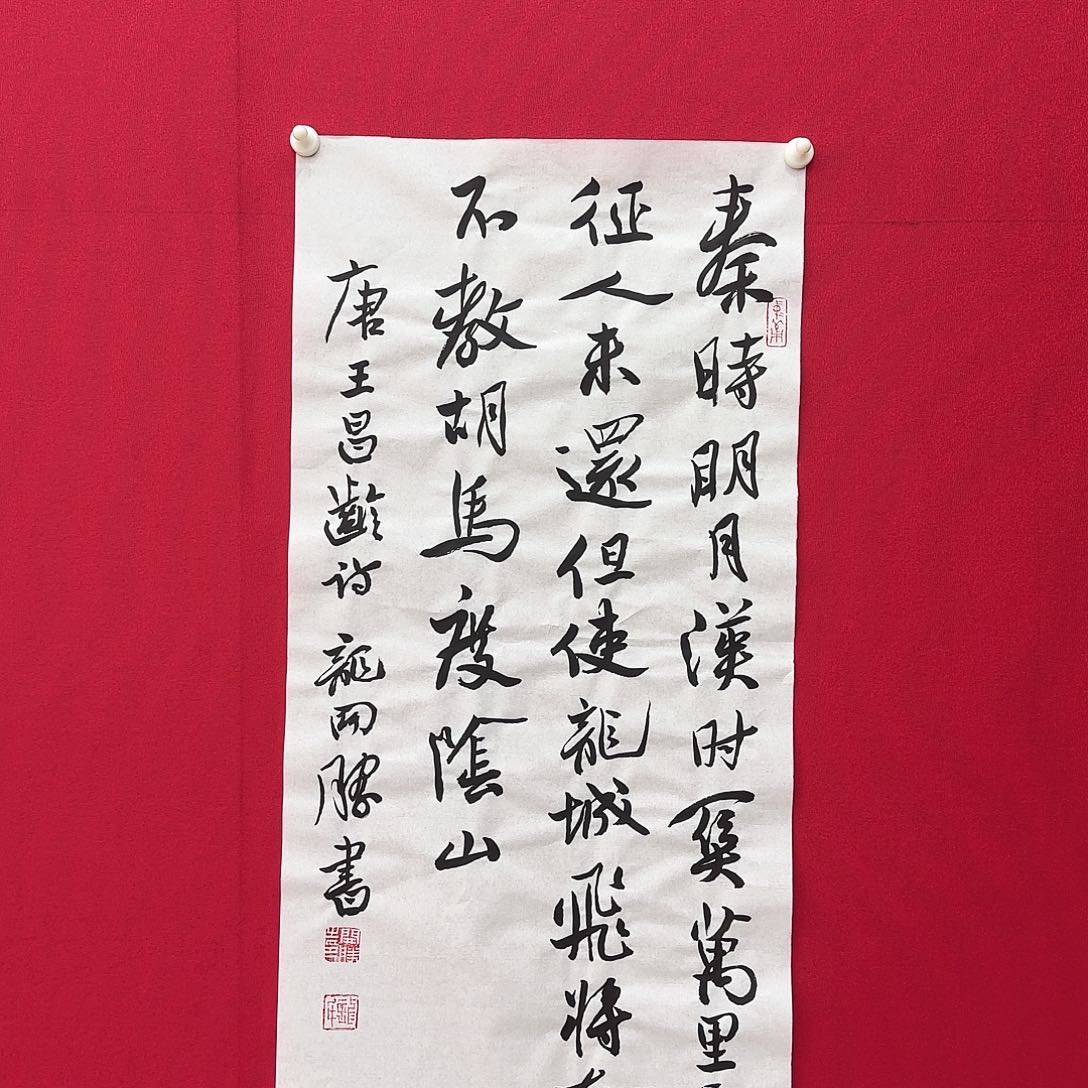 秦時明月漢时関萬里
征人未還但使龍城飛将
不教胡馬度陰山
唐王昌齡诗 龍開勝書